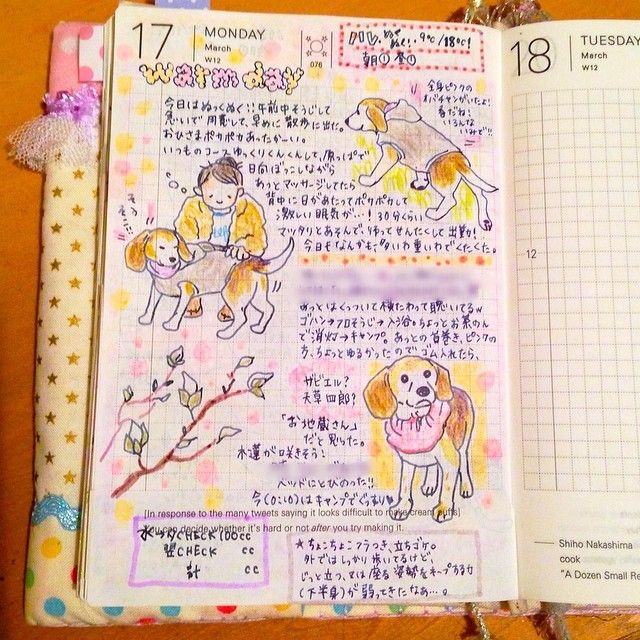 17
MONDAY
March
W12
076
ぬくぬく! 9℃/18℃!
朝① 昼①
warm day
全身ピンクの
オバチャンがいたよ!
春だね!
いろんな
いみで!!
今日はぬっくぬく!!午前中そうじして
急いで用意して、早めに散歩に出た。
おひさまポカポカあったかーい。
いつものコースゆっくりくんくんして、原っぱで
日向ぼっこしながら
あっとマッサージしてたら
背中に日があたってポカポカして
激しい眠気が…!30分くらい
マッタリとあそんでりゆってせんたくして出勤!
今日もなんかもダルいわ重いわでくたくた。
そう
そこ
あっとはくっついて横たわって聴いてるw
ゴハン→フロそうじ→入浴。ちょっとお茶のん
で消灯→キャンプ。あっとの首巻き、ピンクの
方、ちょっとゆるかったのでゴム入れたら、
ザビエル?
天草四郎?
「お地蔵さん」
だと思った。
木蓮が咲きそう!
ベッドにとびのった!!
今(0:10)はキャンプで
[In response to the many tweets saying it looks difficult to make cream puffs]
You can decide whether it's hard or not after you try making it.
水 夕CHECK 100cc
翌CHECK cc
計 cc
★ちょこちょこフラつき、立ちゴケ。
外ではしっかり歩いてるけど、
じっと立つ、又は座る姿勢をキープする力
(下半身)が弱ってきたなぁ…。
18
TUESDAY
March
W12
12
Shiho Nakashima
cook
"A Dozen Small Re